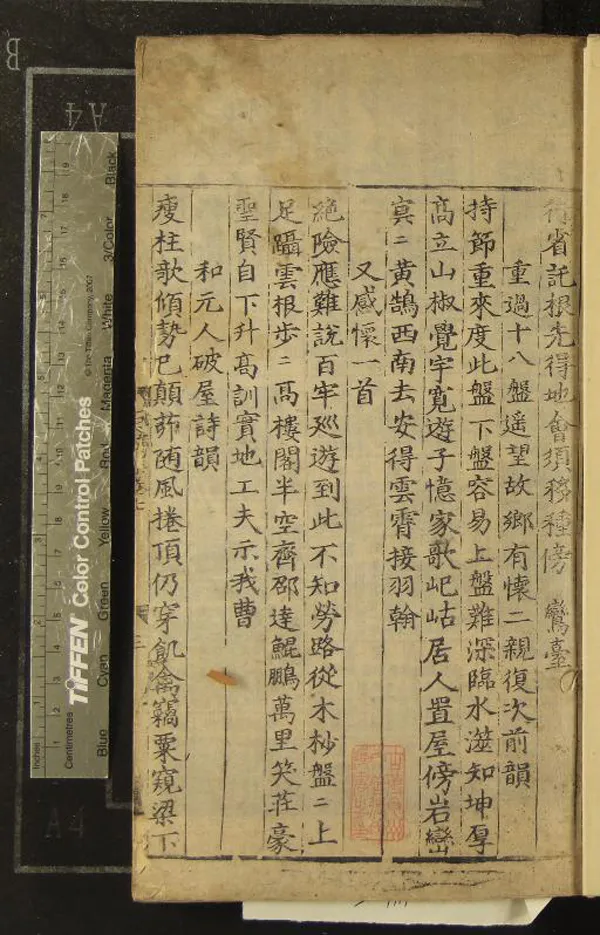 行省託根先得地會須移種傍鸞臺
重過十八盤遥望故鄉有懷二親復次前韻
持節重來度此盤下盤容易上盤難深臨水澨知坤厚
高立山椒覺宇寬遊子憶家歌屺岵居人置屋傍岩巒
冥〻黄鵠西南去安得雲霄接羽翰
又感懷一首
絶險應難說百牢廵遊到此不知勞路從木杪盤〻上
足躡雲根歩〻高樓閣半空齊卲達鯤鵬萬里笑莊豪
聖賢自下升高訓實地工夫示我曹
和元人破屋詩韻
瘦柱歌傾勢已顛茆随風捲頂仍穿飢禽竊粟窺梁下
TIFFEN Color Control Patches
© The Tiffen Company, 2007
Blue Cyan Green Yellow Red Magenta White 3/Color Black
Inches
Centimetres
1 2 3 4 5 6 7 8 9 10 11 12 13 14 15 16 17 18 19
A4
B
A4